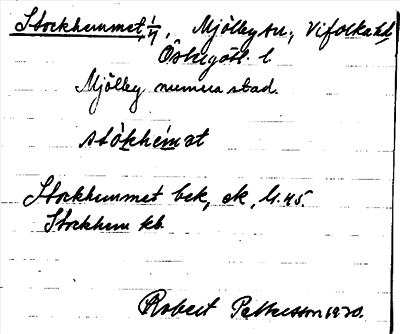 Stockhemmet, 1/4, Mjölby sn., Vifolka hd
Östergötl. l
Mjölby numera stad.
stòkhemət
Stockhemmet bek, ek,
Stockhem kb
Robert Pettersson 1930.